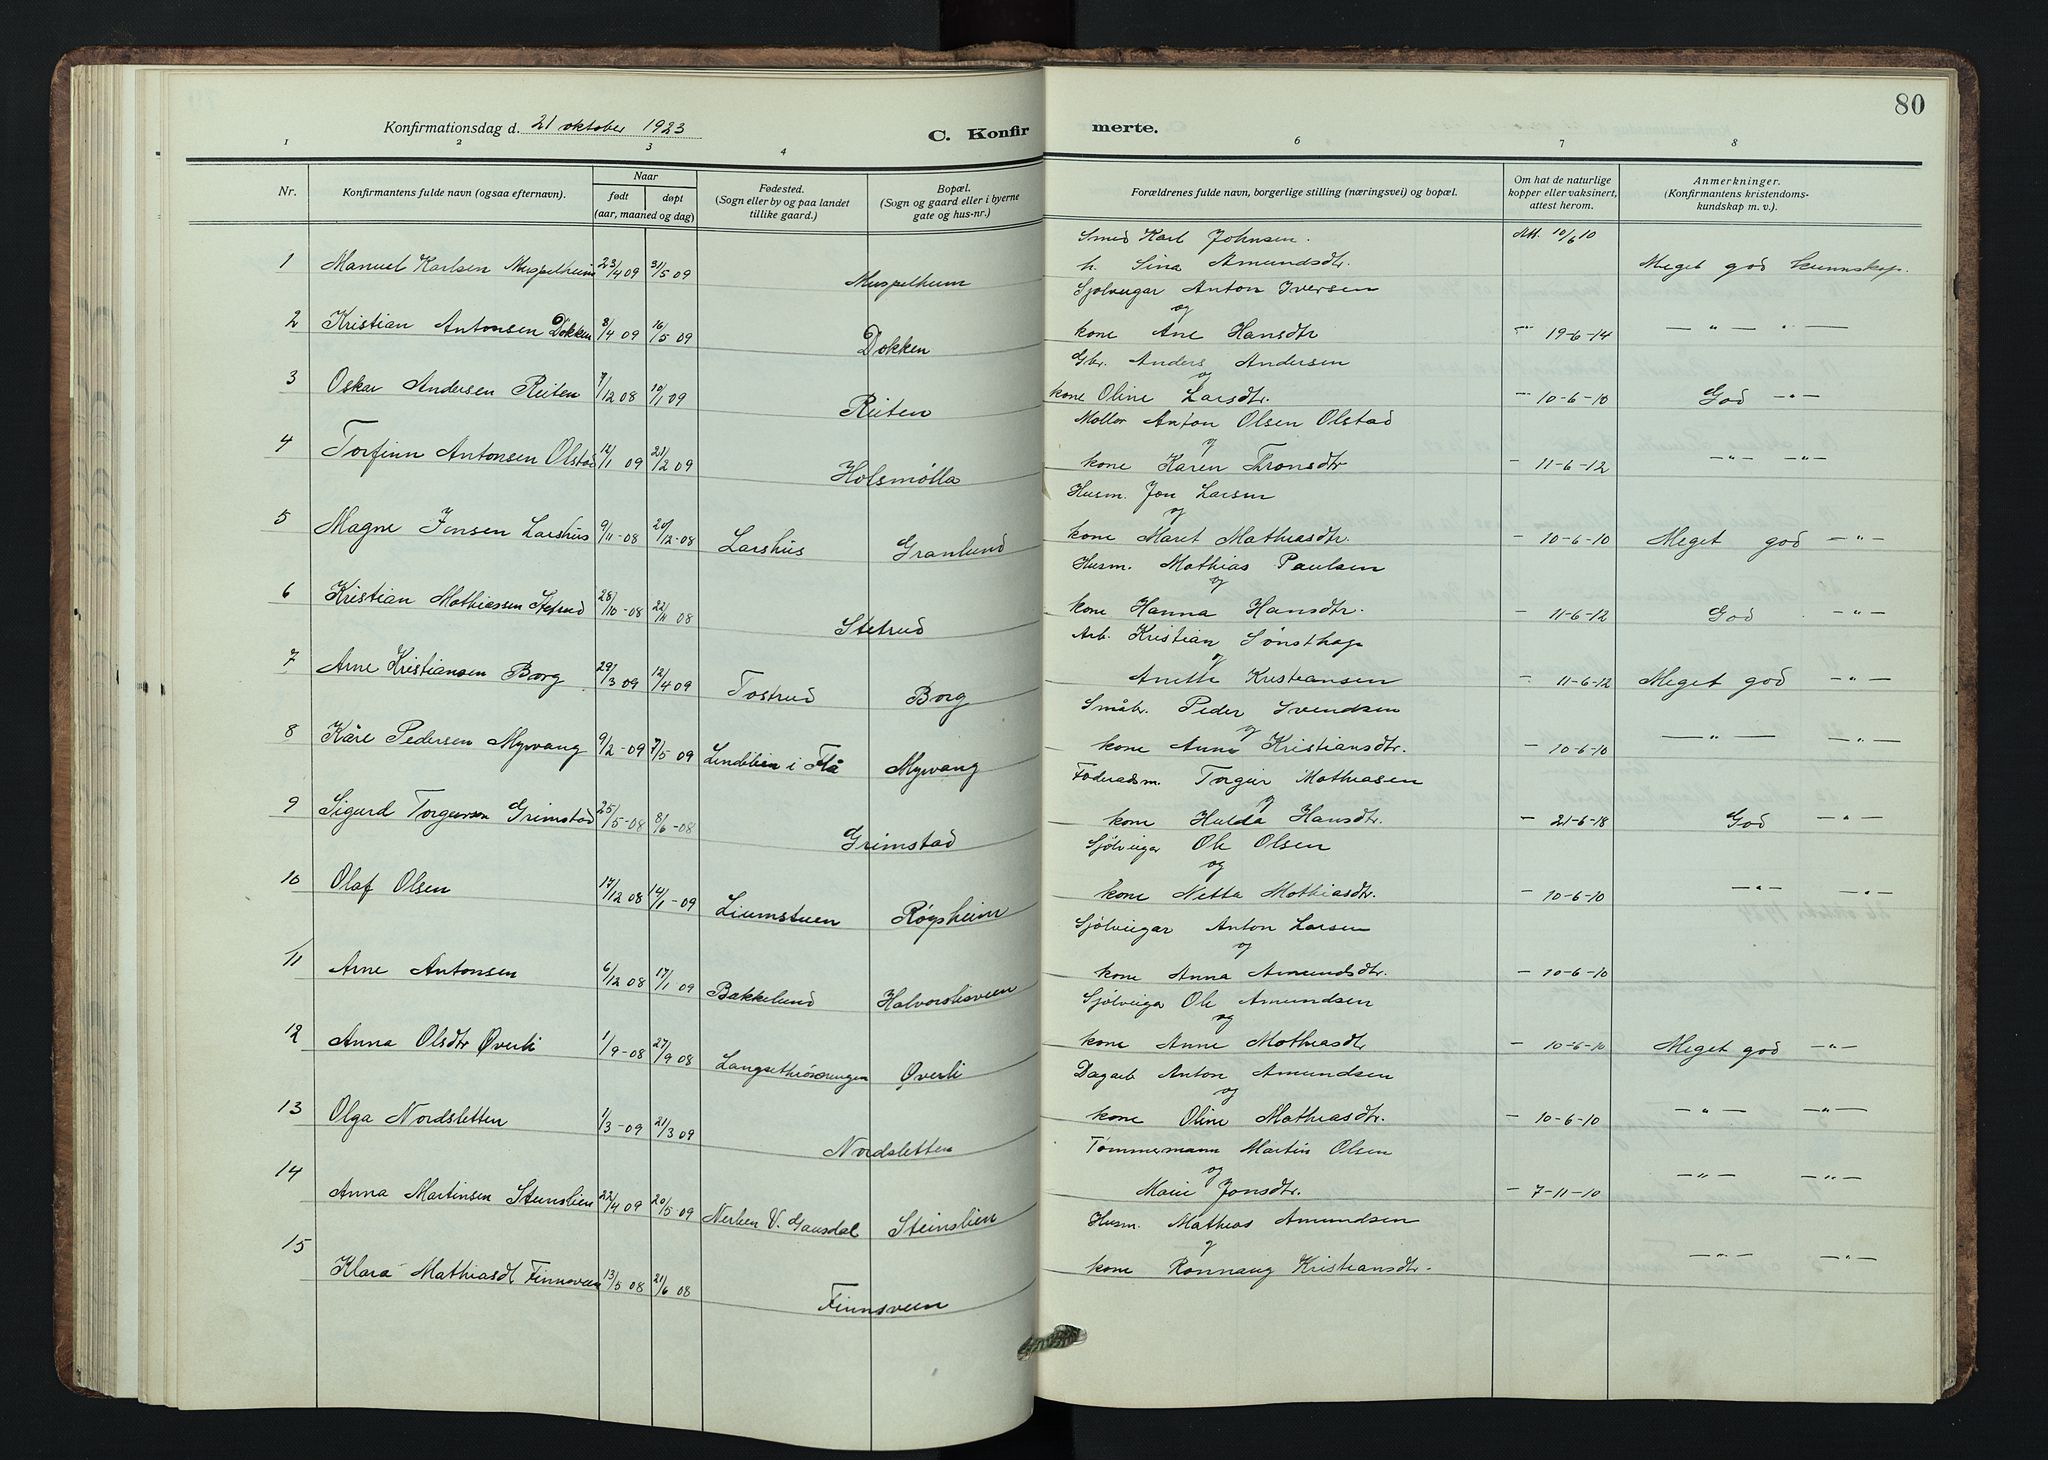 80
Konfirmationsdag d. 21 oktober 1923
C. Konfirmerte.
1 2 3 4 6 7 8
Nr.
Konfirmantens fulde navn (ogsaa efternavn).
Naar
født døpt
(aar, maaned og dag)
Fødested.
(Sogn eller by og paa landet
tillike gaard.)
Bopæl.
(Sogn og gaard eller i byerne
gate og hus-nr.)
Forældrenes fulde navn, borgerlige stilling (næringsvei) og bopæl.
Om hat de naturlige
kopper eller vaksinert,
attest herom.
Anmerkninger.
(Konfirmantens kristendoms-
kundskap m. v.).
Smed Karl Johnsen. Att. 10/6 10
1 Manuel Karlsen Muspelheim 23/4 09 31/5 09 Muspelheim h. Sina Amundsdtr. Meget god kunnskap.
Sjølveigar Anton Iversen
og
2 Kristian Antonsen Dokken 8/4 09 16/5 09 Dokken kone Ane Hansdtr -"- 19-6-14 — " — " —
Gbr. Anders Andersen
og
3 Oskar Andersen Reiten 7/12 08 10/1 09 Reiten kone Oline Larsdtr. -"- 10-6-10 God —"—
Møller Anton Olsen Olstad
og
4 Torfinn Antonsen Olstad 12/1 09 21/2 09 Holsmølla kone Karen Thronsdtr - 11-6-12 —"— —"—
Husm. Jon Larsen
og
5 Magne Jonsen Larshus 9/11-08 20/12-08 Larshus Granlund kone Maret Mathiasdtr. - 10-6-10 Meget god —"—
Husm. Mathias Paulsen
og
6 Kristian Mathiassen Stetrud 28/10-08 22/11 08 Stetrud kone Hanna Hansdtr. - 11-6-12 God. —"—
Arb. Kristian Sønsthag
og
7 Arne Kristiansen Borg 29/3 09 12/4 09 Tostrud Borg Anette Kristiansen - 11-6-12 Meget god —"—
Småbr. Peder Svendsen
og
8 Kåre Pedersen Myrvang 9/2-09 7/5 09 Lindelien i Flå Myrvang kone Anne Kristiansdtr. - 10-6-10 — " — —"—
Føderådsm. Torger Mathiasen
og
9 Sigurd Torgersen Grimstad 25/5-08 8/6-08 Grimstad kone Hulda Hansdtr. - 21-6-18 God —"—
Sjølveigar Ole Olsen
og
10 Olaf Olsen 17/12 08 14/1-09 Liumstuen Røysheim kone Netta Mathiasdtr. - 10-6-10 —"— —"—
Sjølveigar Anton Larsen
og
11 Arne Antonsen 6/12 08 17/1 09 Bakkelund Halvorslisveen kone Anna Amundsdtr. - 10-6-10
Sjølveiga Ole Amundsen
og
12 Anna Olsdtr Øverli 1/9-08 27/9 08 Øverli kone Anne Mathiasdtr - 10-6-10 Meget god —"—
Dagarb. Anton Amundsen
og
13 Olga Nordsletten 1/3-09 21/3 09 Nordsletten kone Oline Mathiasdtr. - 10-6-10 —"— —"—
Tømmermann Martin Olsen
og —"— —"—
14 Anna Martinsen Steinslien 22/4 09 20/5-09 Nerlien V. Gausdal Steinslien Marie Jonsdtr. - 7-11-10
Husm. Mathias Amundsen
og
15 Klara Mathiasdt Finnsveen 13/5 08 21/6 08 Finnsveen kone Rønnaug Kristiansdtr. —"— —"—